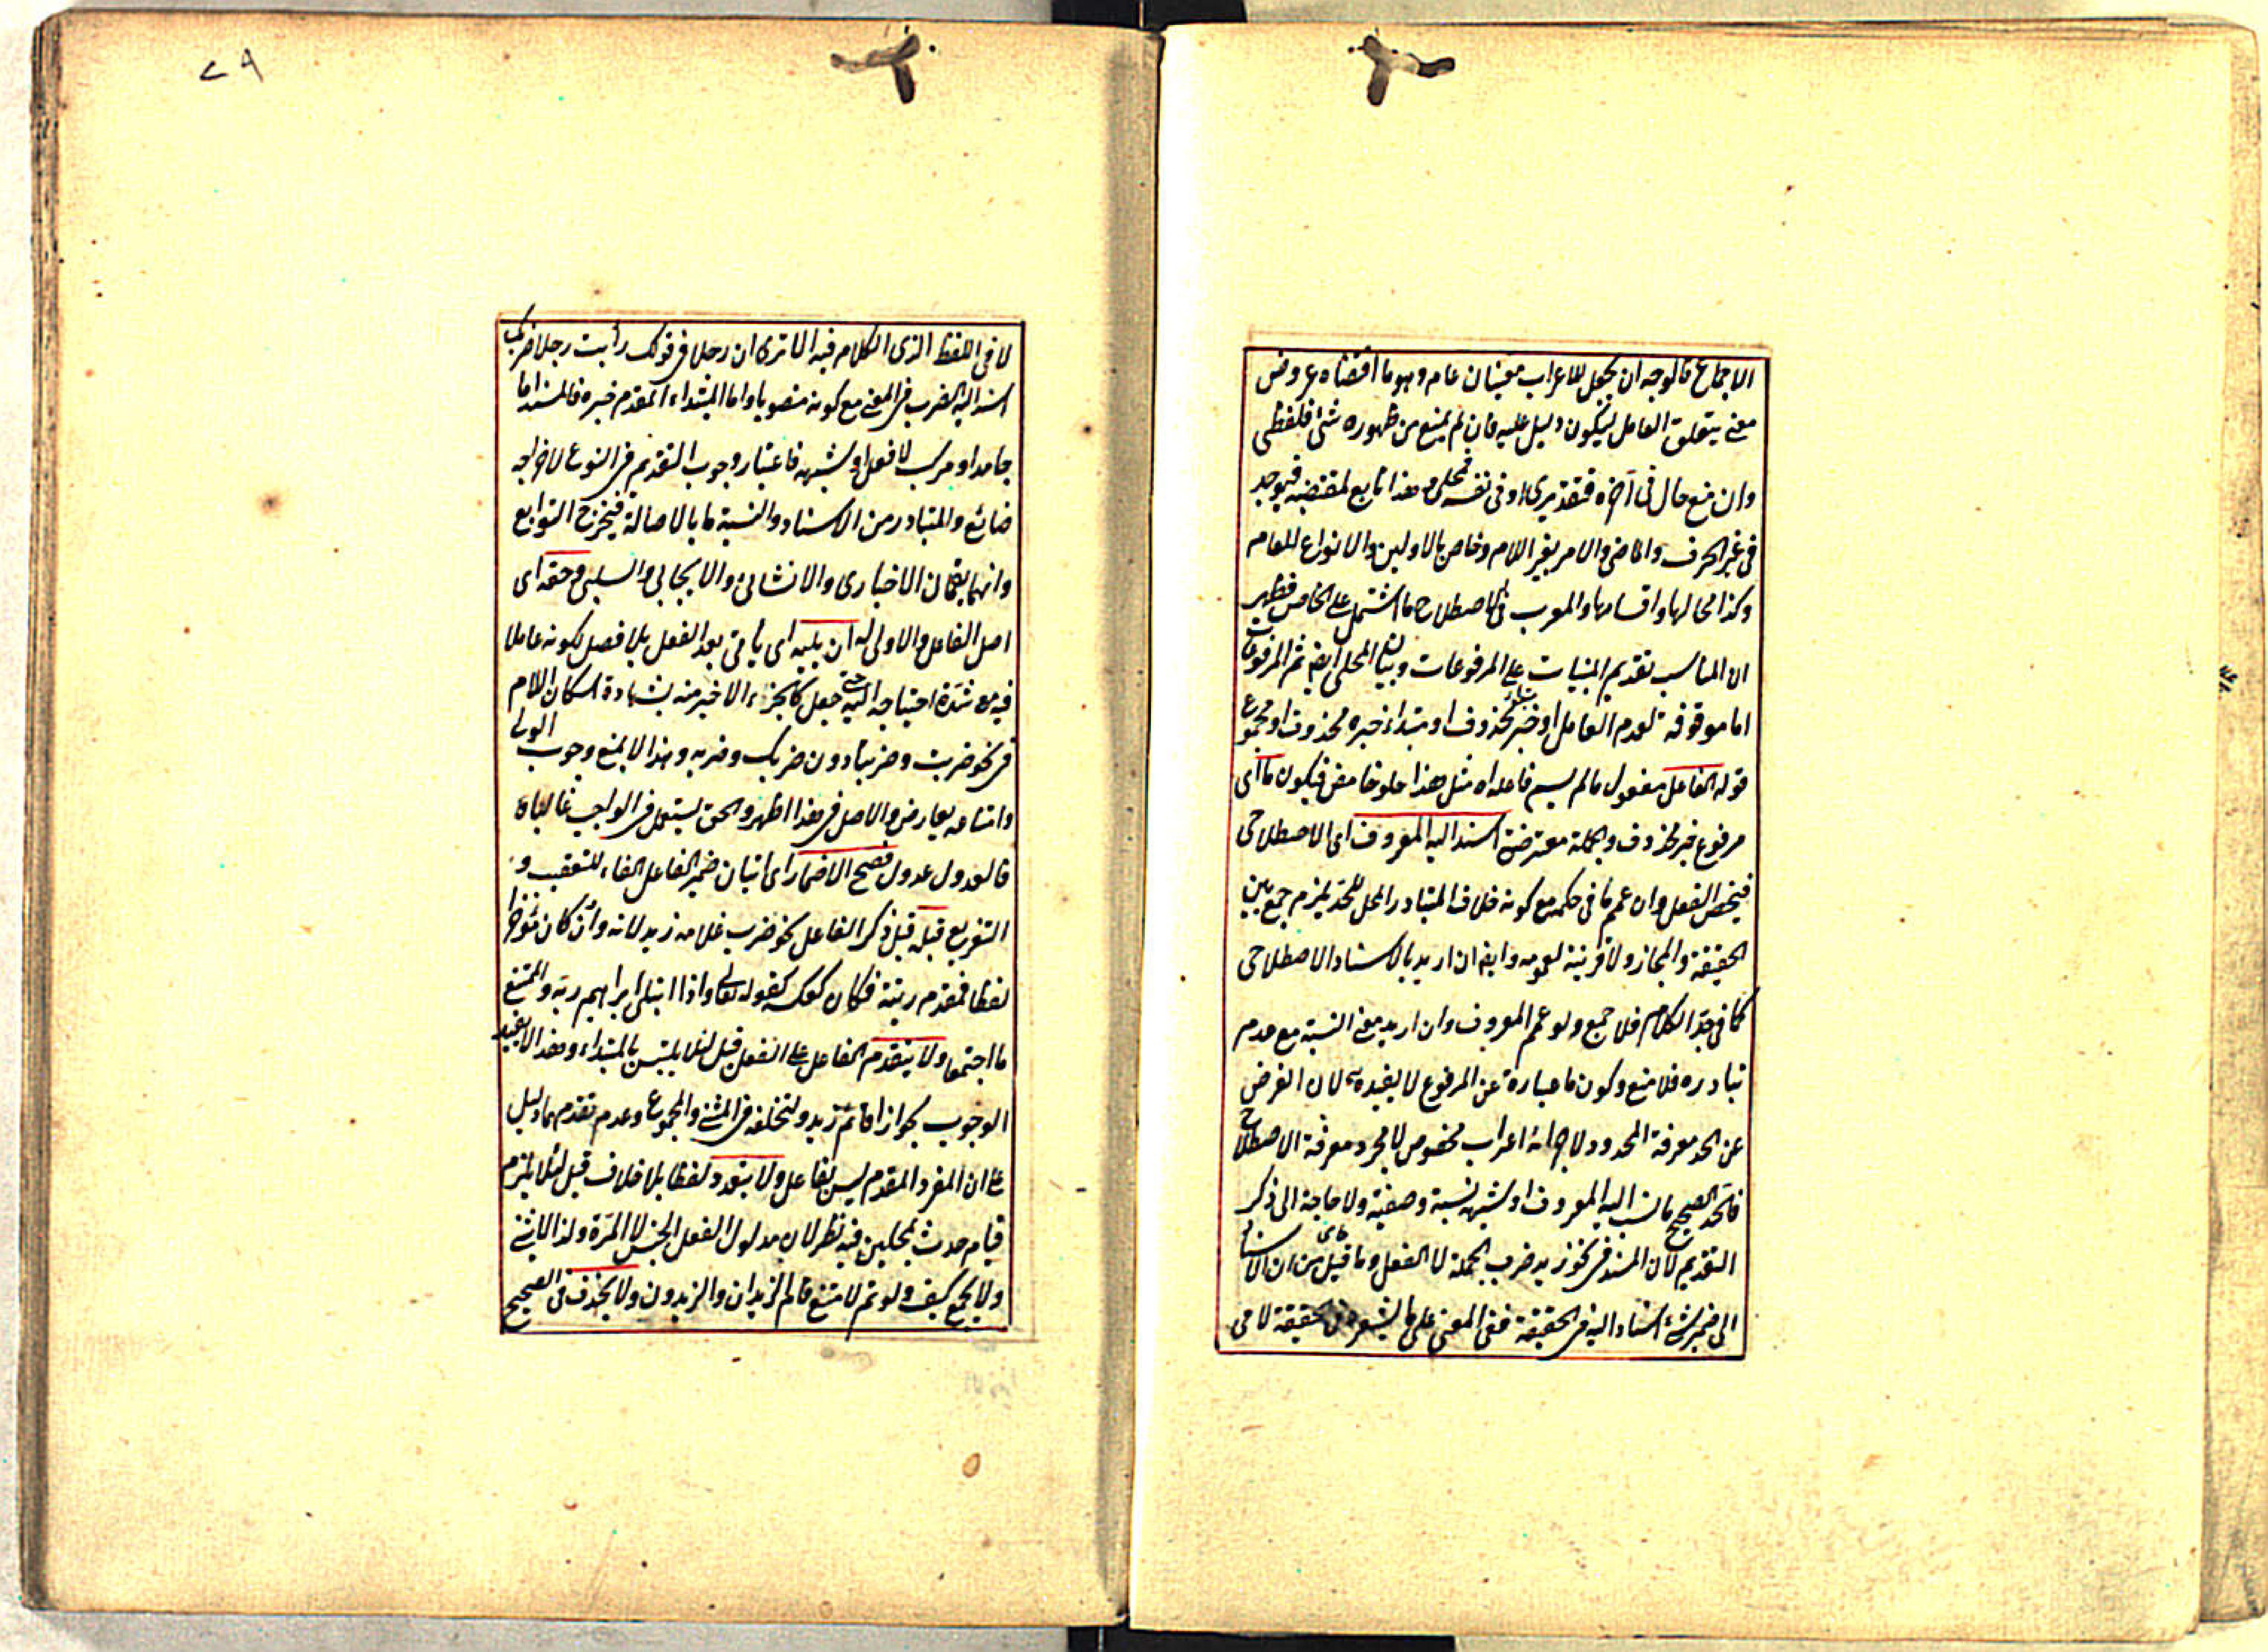 الاجماع فالوجه ان يجعل للاعراب معنيان عام وهو ما اقتضاه عروض
معنى يتعلق العامل ليكون دليل عليه فان لم يمنع من ظهوره شئ فلفظى
وان منع حال فى آخره فتقديرى او فى نفسه فمحلى وهذا تابع لمقتضيه فيوجد
فى غير الحرف والماضى والامر بغير اللام وخاص بالاولين والانواع للعام
وكذا محالها واقسامها والمعرب فى الاصطلاح ما اشتمل على الخاص فظهر
ان المناسب تقديم المبنيات على المرفوعات وبيان المحلى ايض ثم المرفوعات
اما موقوفة لعدم العامل او خبر مبتداء محذوف او مبتداء خبره محذوف او مجموع
قوله الفاعل مفعول مالم يسم فاعلاه مثل هذا حلو حامض فيكون ما اى
مرفوع خبر محذوف والجملة معترضة اسند اليه المعروف اى الاصطلاحى
فيخص الفعل وان عمم ما فى حكمه مع كونه خلاف المتبادر المحل للحد يلزم جمع بين
الحقيقة والمجاز ولا قرينة لعمومه وايض ان اريد بالاسناد الاصطلاحى
كما فى حد الكلام فلا جمع ولو عمم المعروف وان اريد معنى النسبة مع عدم
تبادره فلا منع وكون ما عبارة عن المرفوع لا يفيده لان الغرض
عن الحد معرفة المحدود لاجراء اعراب مخصوص لا مجرد معرفة الاصطلاح
فالحد الصحيح ما نسب اليه المعروف او شبهه نسبة وصفية ولا حاجة الى ذكر
التقديم لان المسند فى نحو زيد ضرب الجملة لا الفعل وما قيل من ان الاسناد
الى ضمير شئ اسناد اليه فى الحقيقة ففى المعنى على ما يشعره فى الحقيقة لا فى
٧٩
لا فى اللفظ الذى الكلام فيه الا ترى ان رجلا فى قولك رأيت رجلا ضربك
اسند اليه الضرب فى المعنى مع كونه منصوبا واما المبتداء المقدم خبره فالمسند اما
جامد او مركب لا فعل او شبهه فاعتبار وجوب التقديم فى النوع لاخراجه
ضائع والمتبادر من الاسناد والنسبة ما بالاصالة فيخرج التوابع
وانهما يعمان الاخبارى والانشائى والايجابى والسلبى وحقه اى
اصل الفاعل والاولى له ان يليه اى يأتى بعد الفعل بلا فصل لكونه عاملا
فيه مع شدة احتياجه اليه حتى جعل كالجزء الاخير منه بشهادة اسكان اللام
فى نحو ضربت وضربنا دون ضربك وضربه وهذا لا يمنع وجوب الولى
وامتناعه بعارض والاصل فى هذا اظهر والحق يستعمل فى الواجب غالبا
فالعدول عدول فصح الاضمار اى اتيان ضمير الفاعل الفاء للتعقيب و
التفريع قبله قبل ذكر الفاعل نحو ضرب غلامه زيد لانه وان كان مؤخرا
لفظا فمقدم رتبة فكان كعكسه كقوله تعالى واذ ابتلى ابراهيم ربه والممتنع
ما اجتمعا ولا يتقدم الفاعل على الفعل قيل لئلا يلتبس بالمبتداء وهذا لا يفيد
الوجوب لجواز اقائم زيد ولتخلفه فى المثنى والمجموع وعدم تقدم هما دليل
على ان المفرد المقدم ليس بفاعل ولا يتعدد لفظا بلا خلاف قيل لئلا يلزم
قيام حدث بمحلين فيه نظر لان مدلول الفعل الجنس لا المرة ولذا لا يثنى
ولا يجمع كيف ولو تم لامتنع قائم الزيدان والزيدون ولا يحذف فى الصحيح